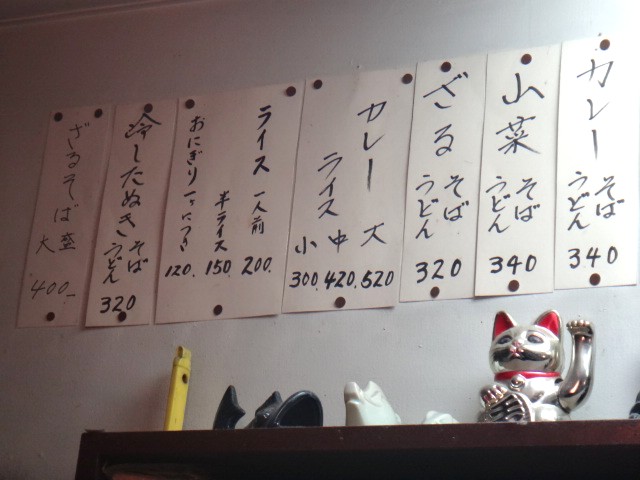 カレー
そば
うどん
340
山菜
そば
うどん
340
ざる
そば
うどん
320
カレー
ライス
大
中
小
520
420.
300.
ライス
一人前
200.
半ライス
150.
おにぎり一ヶにつき
120.
冷したぬき
そば
うどん
320
ざるそば
大盛
400.-